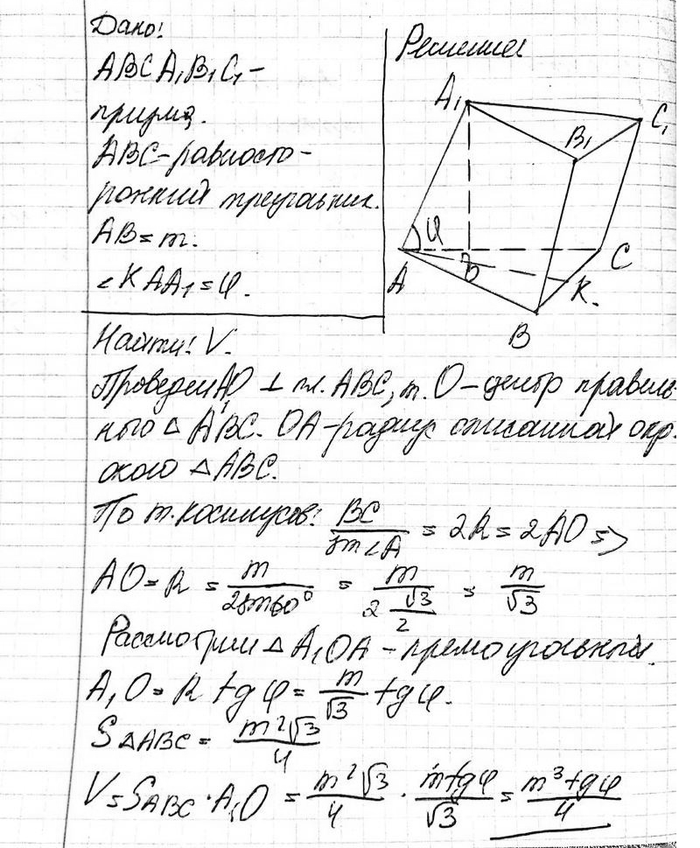 Дано:
ABCA₁B₁C₁ –
призма.
ABC – равносто-
ронний треугольник.
AB = m.
∠KAA₁ = φ.
Решение:
A₁
C₁
B₁
φ
A
D
C
K.
B
Найти: V.
Проведем A₁O ⊥ пл. ABC, т. O – центр правиль-
ного △ ABC. OA – радиус описанная окр.
около △ ABC.
По т. косинусов: BC / sin∠A = 2R = 2AO =>
AO = R = m / 2sin60° = m / (2 √3/2) = m / √3
Рассмотрим △ A₁OA – прямоугольный.
A₁O = R tgφ = m/√3 tgφ.
S△ABC = m²√3 / 4
V = S ABC · A₁O = m²√3 / 4 · mtgφ / √3 = m³tgφ / 4